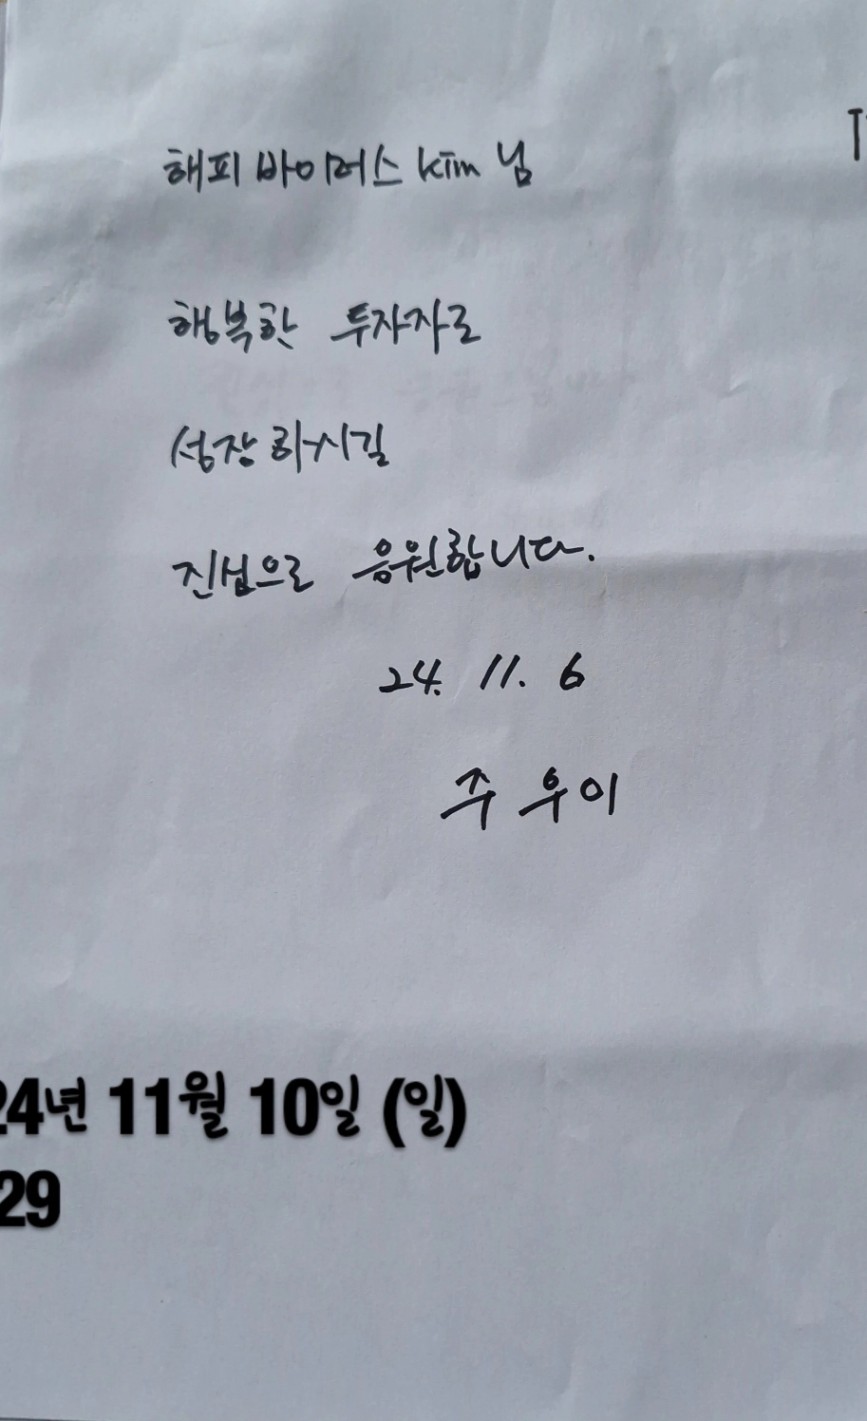 해피바이러스 kim 님
행복한 투자자로
성장하시길
진심으로 응원합니다.
24. 11. 6
주우이
24년 11월 10일 (일)
29